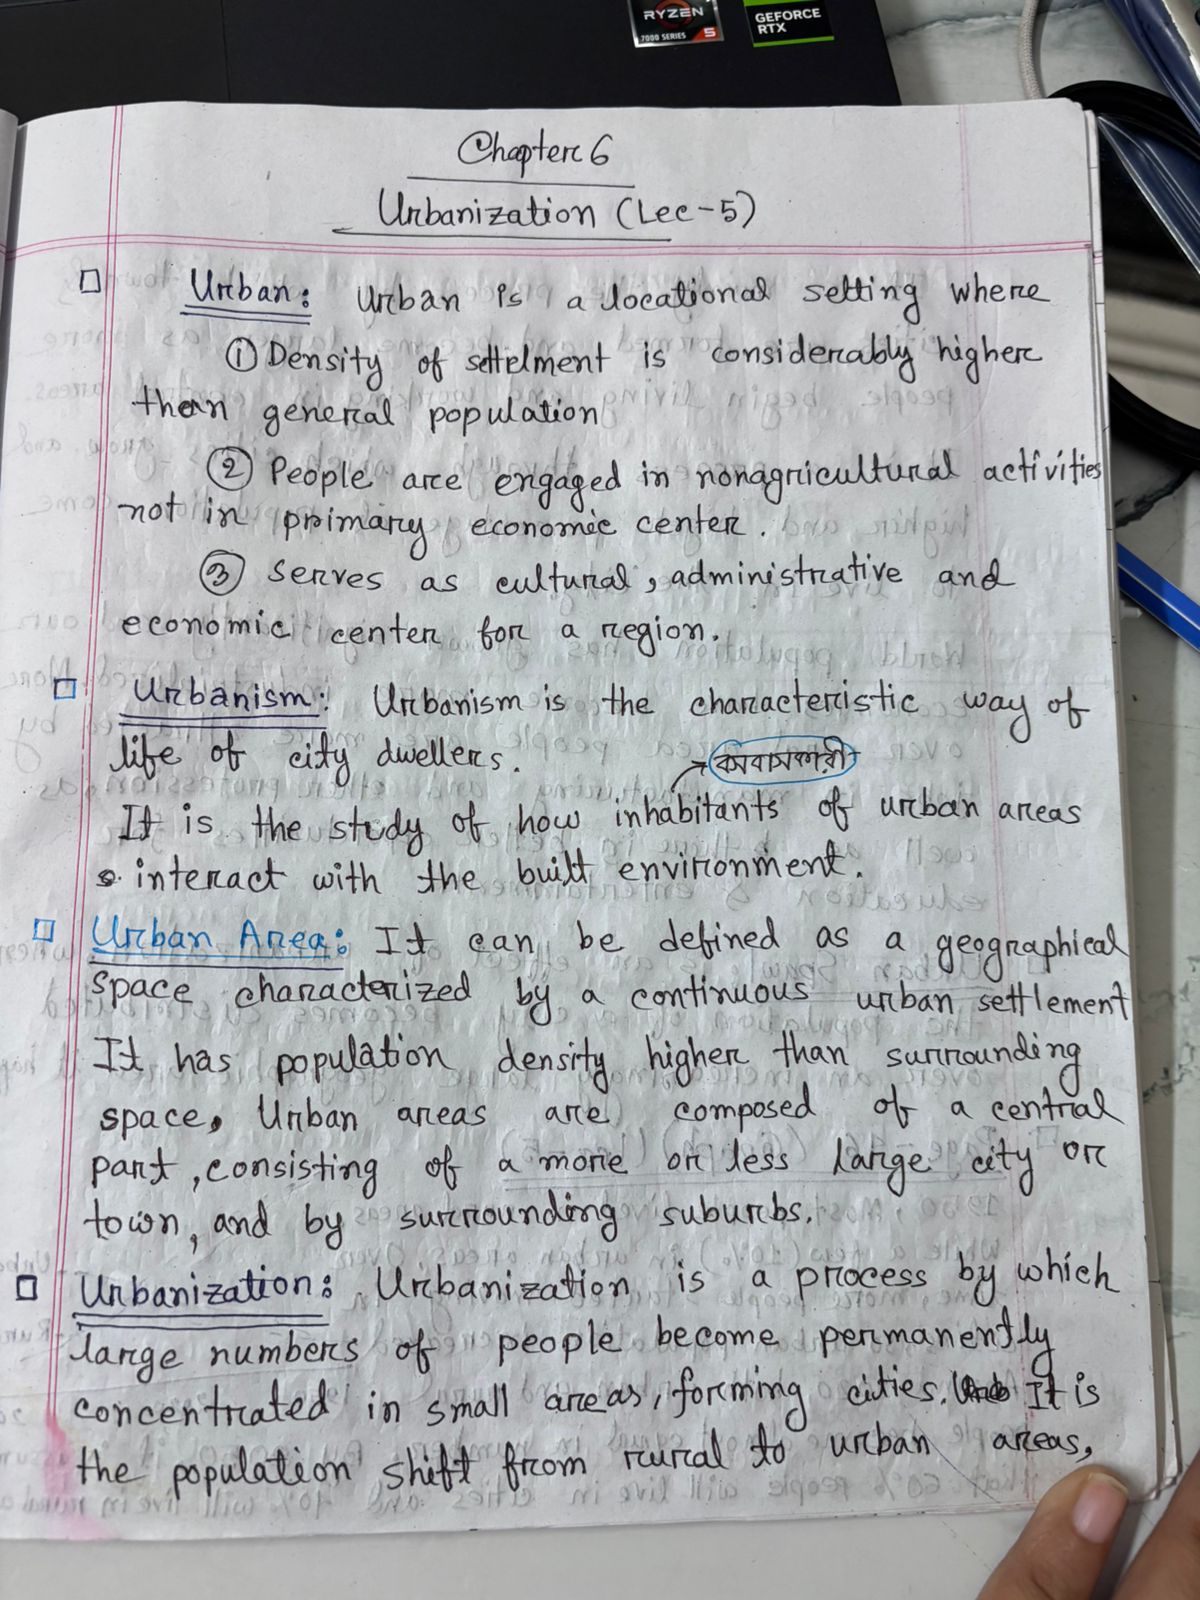 RYZEN
7000 SERIES 5
GEFORCE
RTX
Chapter 6
Urbanization (Lec-5)
Urban: Urban is a locational setting where
① Density of settelment is considerably higher
than general population
② People are engaged in nonagricultural activities
not in primary economic center.
③ Serves as cultural, administrative and
economic center for a region.
Urbanism: Urbanism is the characteristic way of
life of city dwellers.
বসবাসকারী
It is the study of how inhabitants of urban areas
interact with the built environment.
Urban Area: It can be defined as a geographical
space characterized by a continuous urban settlement
It has population density higher than surrounding
space, Urban areas are composed of a central
part, consisting of a more or less large city or
town, and by surrounding suburbs.
Urbanization: Urbanization is a process by which
large numbers of people become permanently
concentrated in small areas, forming cities. It is
the population shift from rural to urban areas,